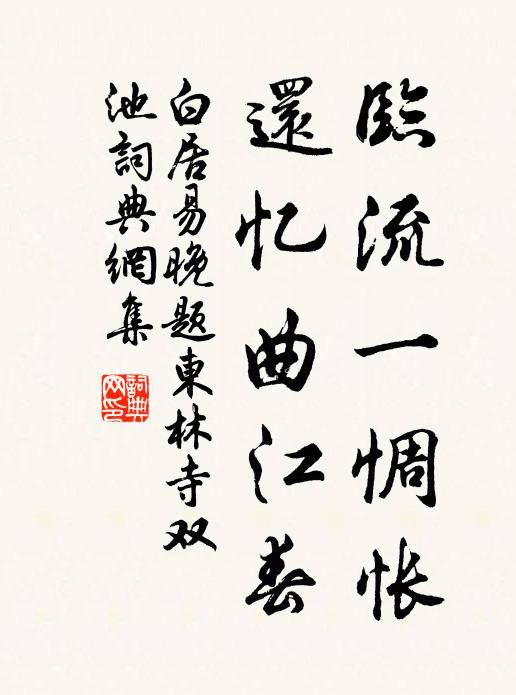 臨流一惆怅
還忆曲江春
白居易晚题東林寺双
池詞典網集
詞典
网印